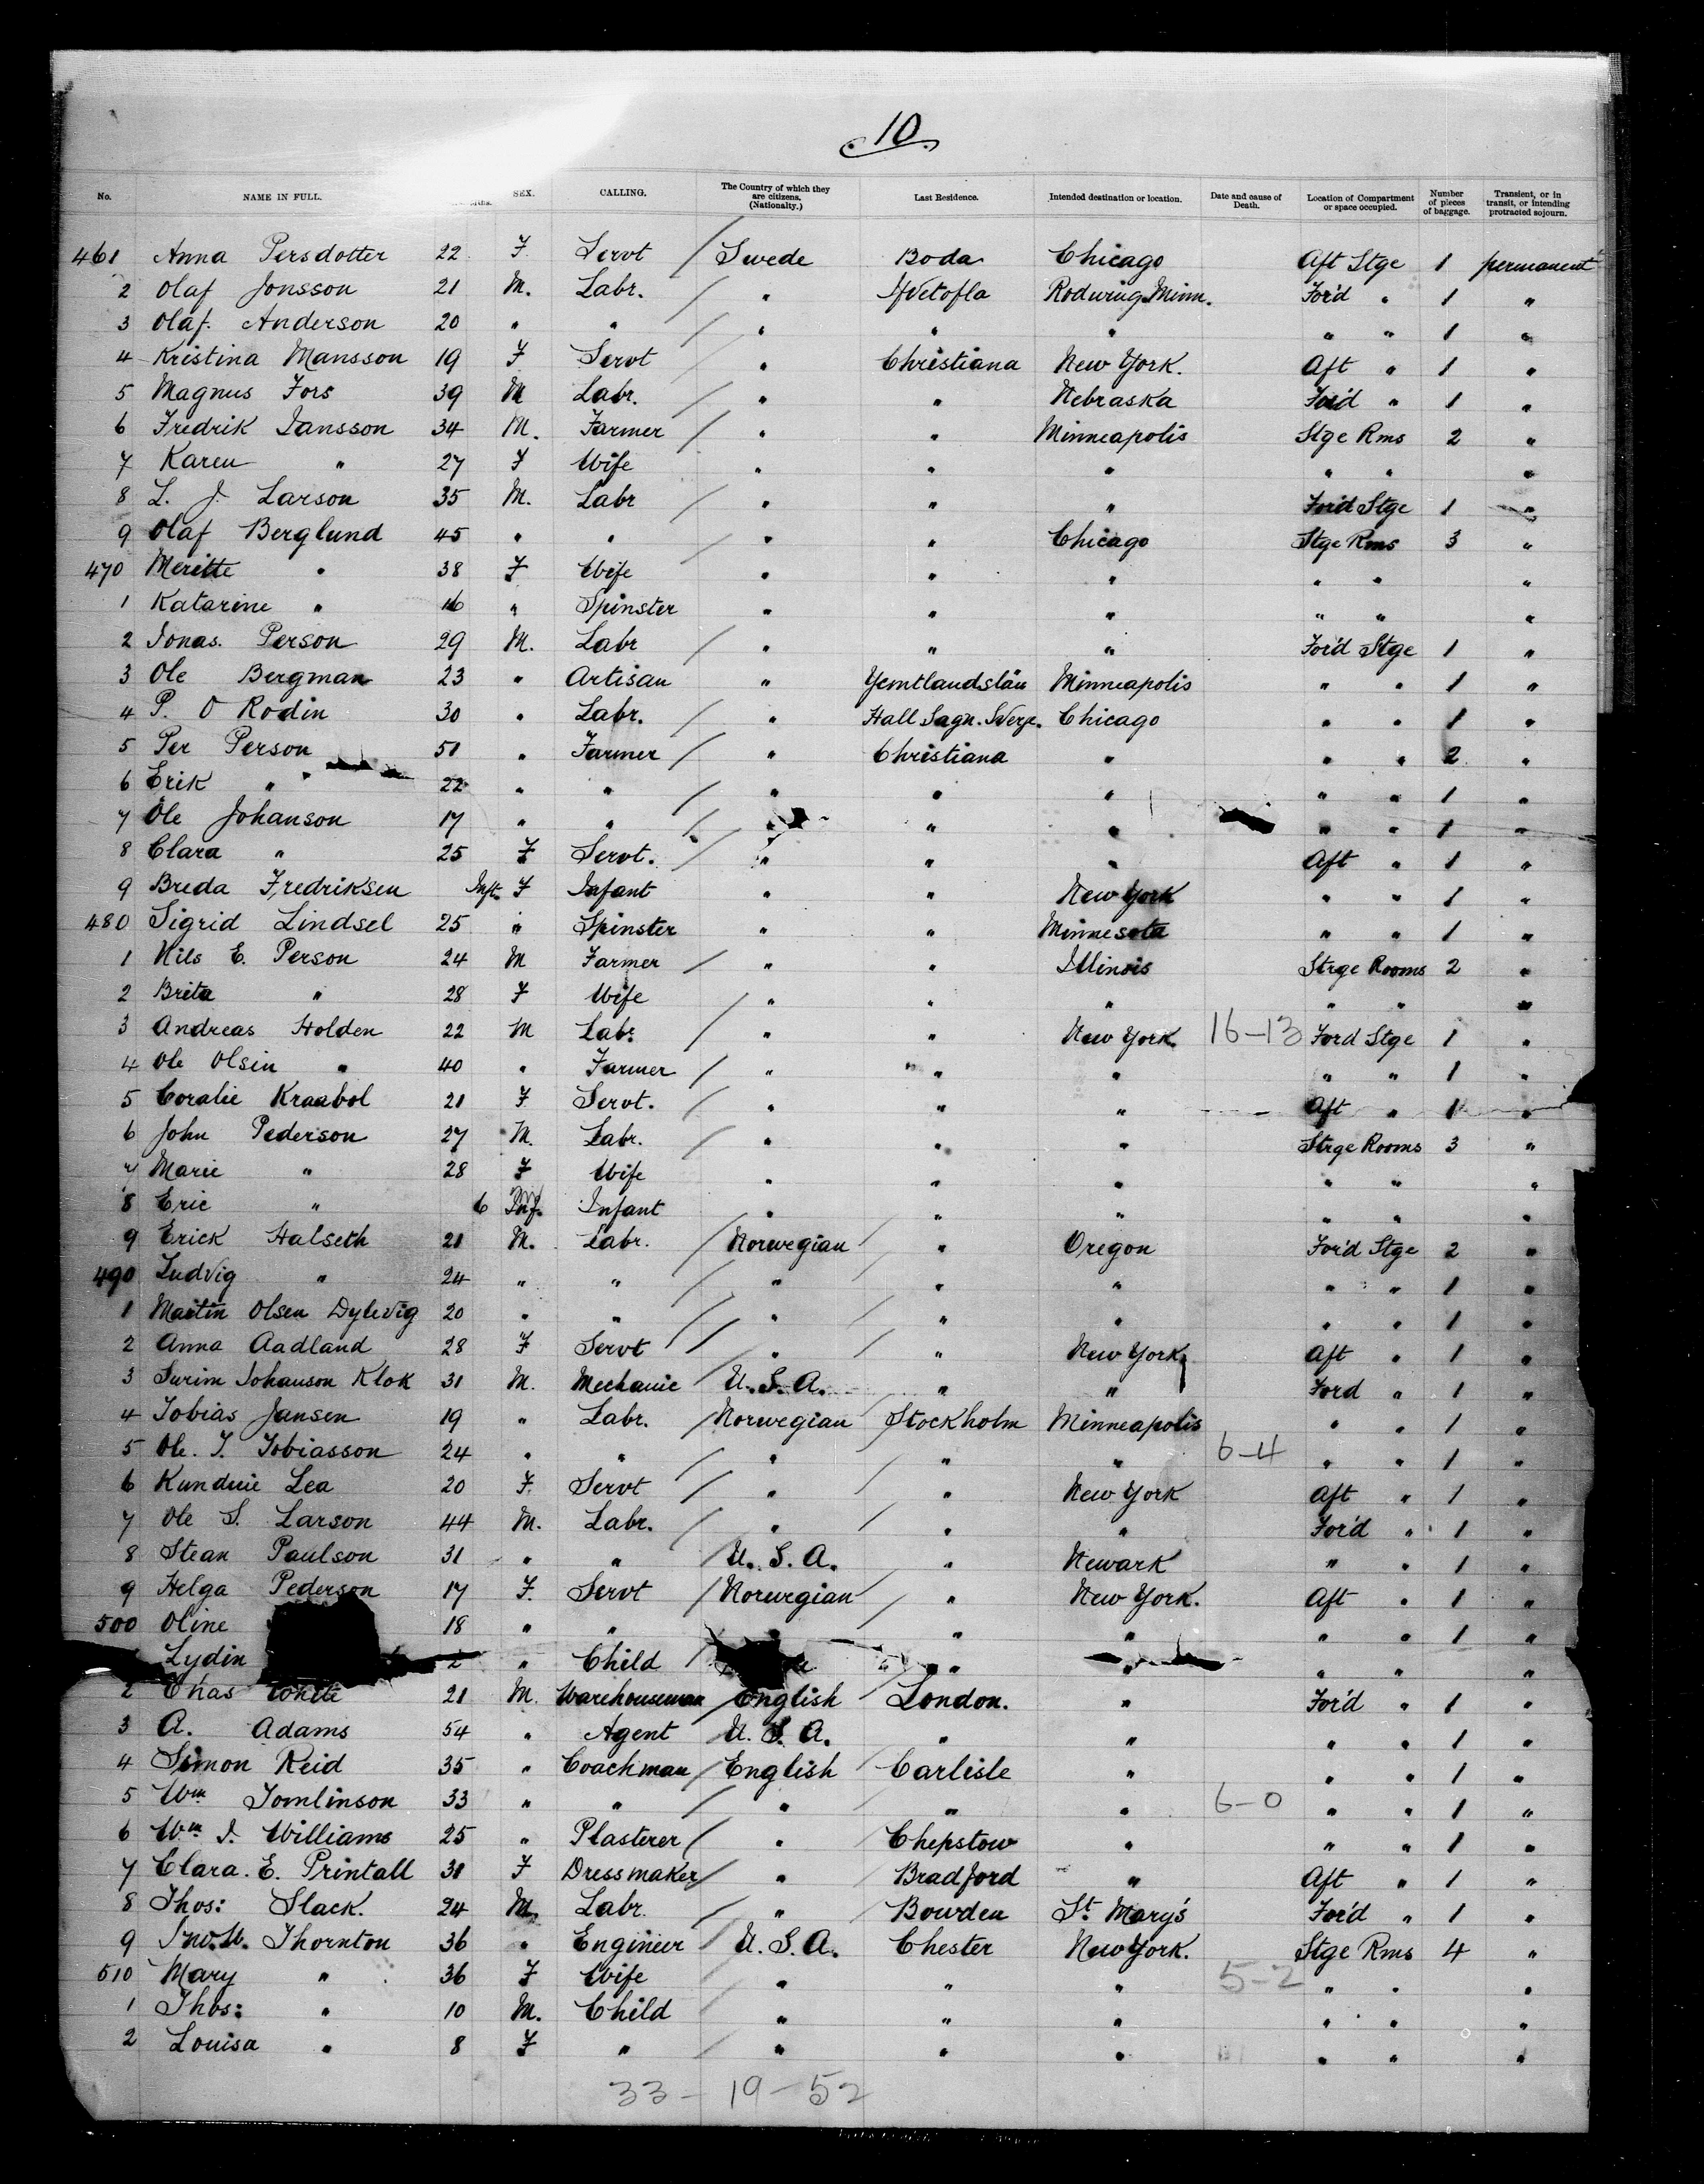 10
No. NAME IN FULL. SEX. CALLING. The Country of which they are citizens. (Nationalty.) Last Residence. Intended destination or location. Date and cause of Death. Location of Compartment or space occupied. Number of pieces of baggage. Transient, or in transit, or intending protracted sojourn.
461 Anna Persdotter 22 F Servt / Swede Boda Chicago Aft Stge 1 permanent
2 Olaf Jonsson 21 M. Labr. / " Rodwing Minn. For'd " 1 "
3 Olaf. Anderson 20 " " / " " " " " 1 "
4 Kristina Mansson 19 F Servt / " Christiana New York. Aft " 1 "
5 Magnus Fors 39 M Labr. / " " Nebraska For'd " 1 "
6 Fredrik Jansson 34 M. Farmer / " " Minneapolis Stge Rms 2 "
7 Karen " 27 F Wife " " " " " "
8 L. J. Larson 35 M. Labr / " " " For'd Stge 1 "
9 Olaf Berglund 45 " " / " " Chicago Stge Rms 3 "
470 Meritte " 38 F Wife " " " " " "
1 Katarine " 16 " Spinster " " " " " "
2 Jonas. Person 29 M. Labr / " " " For'd Stge 1 "
3 Ole Bergman 23 " Artisan " Yemtlandslän Minneapolis " " 1 "
4 P. O Rodin 30 " Labr. / " Hall Sagn. Chicago " " 1 "
5 Per Person 51 " Farmer / " Christiana " " " 2 "
6 Erik " 22 " " / " " " " " 1 "
7 Ole Johanson 17 " " / " " " " " 1 "
8 Clara " 25 F Servt. / " " " Aft " 1 "
9 Breda Fredriksen Inft. F Infant " " New York " " 1 "
480 Sigrid Lindsel 25 " Spinster " " Minnesota " " 1 "
1 Nils E. Person 24 M Farmer / " " Illinois Strge Rooms 2 "
2 Brita " 28 F Wife / " " " " " "
3 Andreas Holden 22 M Labr / " " New York. 16-13 Ford Stge 1 "
4 Ole Olsin " 40 " Farmer / " " " " " 1 "
5 Coralie Kraabol 21 F Servt. / " " " Aft " 1 "
6 John Pederson 27 M. Labr. / " " " Strge Rooms 3 "
7 Marie " 28 F Wife " " " " " "
8 Eric " 6 Inf. Infant " " " " " "
9 Erick Halseth 21 M. Labr. / Norwegian " Oregon For'd Stge 2 "
490 Ludvig " 24 " " / " / " " " " 1 "
1 Martin Olsen Dylevig 20 " " / " / " " " " 1 "
2 Anna Aadland 28 F Servt / " / " New York Aft " 1 "
3 Johanson Klok 31 M. Mechanic / U.S.A. " " Ford " 1 "
4 Tobias Jansen 19 " Labr. / Norwegian Stockholm Minneapolis " " 1 "
5 Ole. T. Tobiasson 24 " " / " / " " 6-4 " " 1 "
6 Lea 20 F. Servt / " / " New York Aft " 1 "
7 Ole S. Larson 44 M. Labr. / " / " " For'd " 1 "
8 Stean Paulson 31 " " / U.S.A. " Newark " " 1 "
9 Helga Pederson 17 F. Servt / Norwegian / " New York. Aft " 1 "
500 Oline 18 " " " " " " 1 "
Lydin " Child / " " " " " "
2 Chas White 21 M. Warehouseman / English London. " For'd " 1 "
3 A. Adams 54 " Agent U.S.A. " " " " 1 "
4 Simon Reid 35 " Coachman / English Carlisle " " " 1 "
5 Wm Tomlinson 33 " " / " / " " 6-0 " " 1 "
6 Wm J. Williams 25 " Plasterer / " Chepstow " " " 1 "
7 Clara. E. Printall 31 F Dressmaker / " Bradford " Aft " 1 "
8 Thos: Slack. 24 M. Labr. / " Bowden St. Mary's For'd " 1 "
9 Thornton 36 " Engineer / U.S.A. Chester New York. Stge Rms 4 "
510 Mary " 36 F Wife / " " " 5-2 " " "
1 Thos: " 10 M. Child / " " " " " "
2 Louisa " 8 F " / " " " " " "
33 - 19 - 52